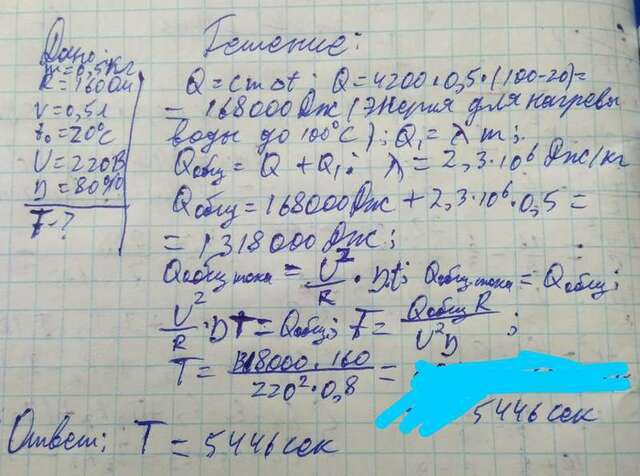 Дано:
m=0,5кг
R=160Ом
V=0,5л
t₀=20°C
U=220В
D=80%
T-?
Решение:
Q=cmΔt; Q=4200·0,5·(100-20)=
=168000Дж (энергия для нагревы
воды до 100°C); Q₁=λm;
Qобщ=Q+Q₁; λ=2,3·10⁶ Дж/кг
Qобщ=168000Дж+2,3·10⁶·0,5=
=1318000Дж;
Qобщ тока=U²/R·Dt; Qобщ тока=Qобщ;
U²/R·DT=Qобщ; T=QобщR/U²D;
T=1318000·160/220²·0,8=
5446сек
Ответ: T=5446сек